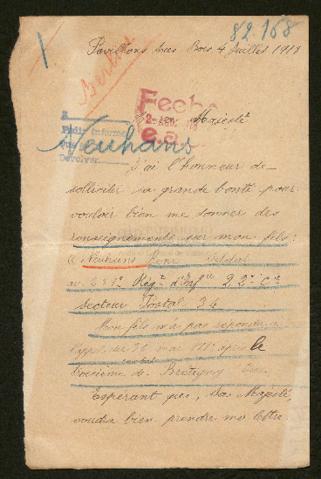 82.168
Pavillons sous Bois 4 Juillet 1918
Berlin
Fecha
Majesté
Pedir informe
Devolver
Neuhans
J'ai l'honneur de
solliciter sa grande bonté pour
vouloir bien me donner des
renseignements sur mon fils:
Neuhans Soldat
Rég.t d'Inf.ie 22e Cie
secteur Postal 34
Mon fils n'a pas répondu
l'appel 26 mai après le
de Bretigny
Espérant que, Sa Majesté
voudra bien prendre ma lettre